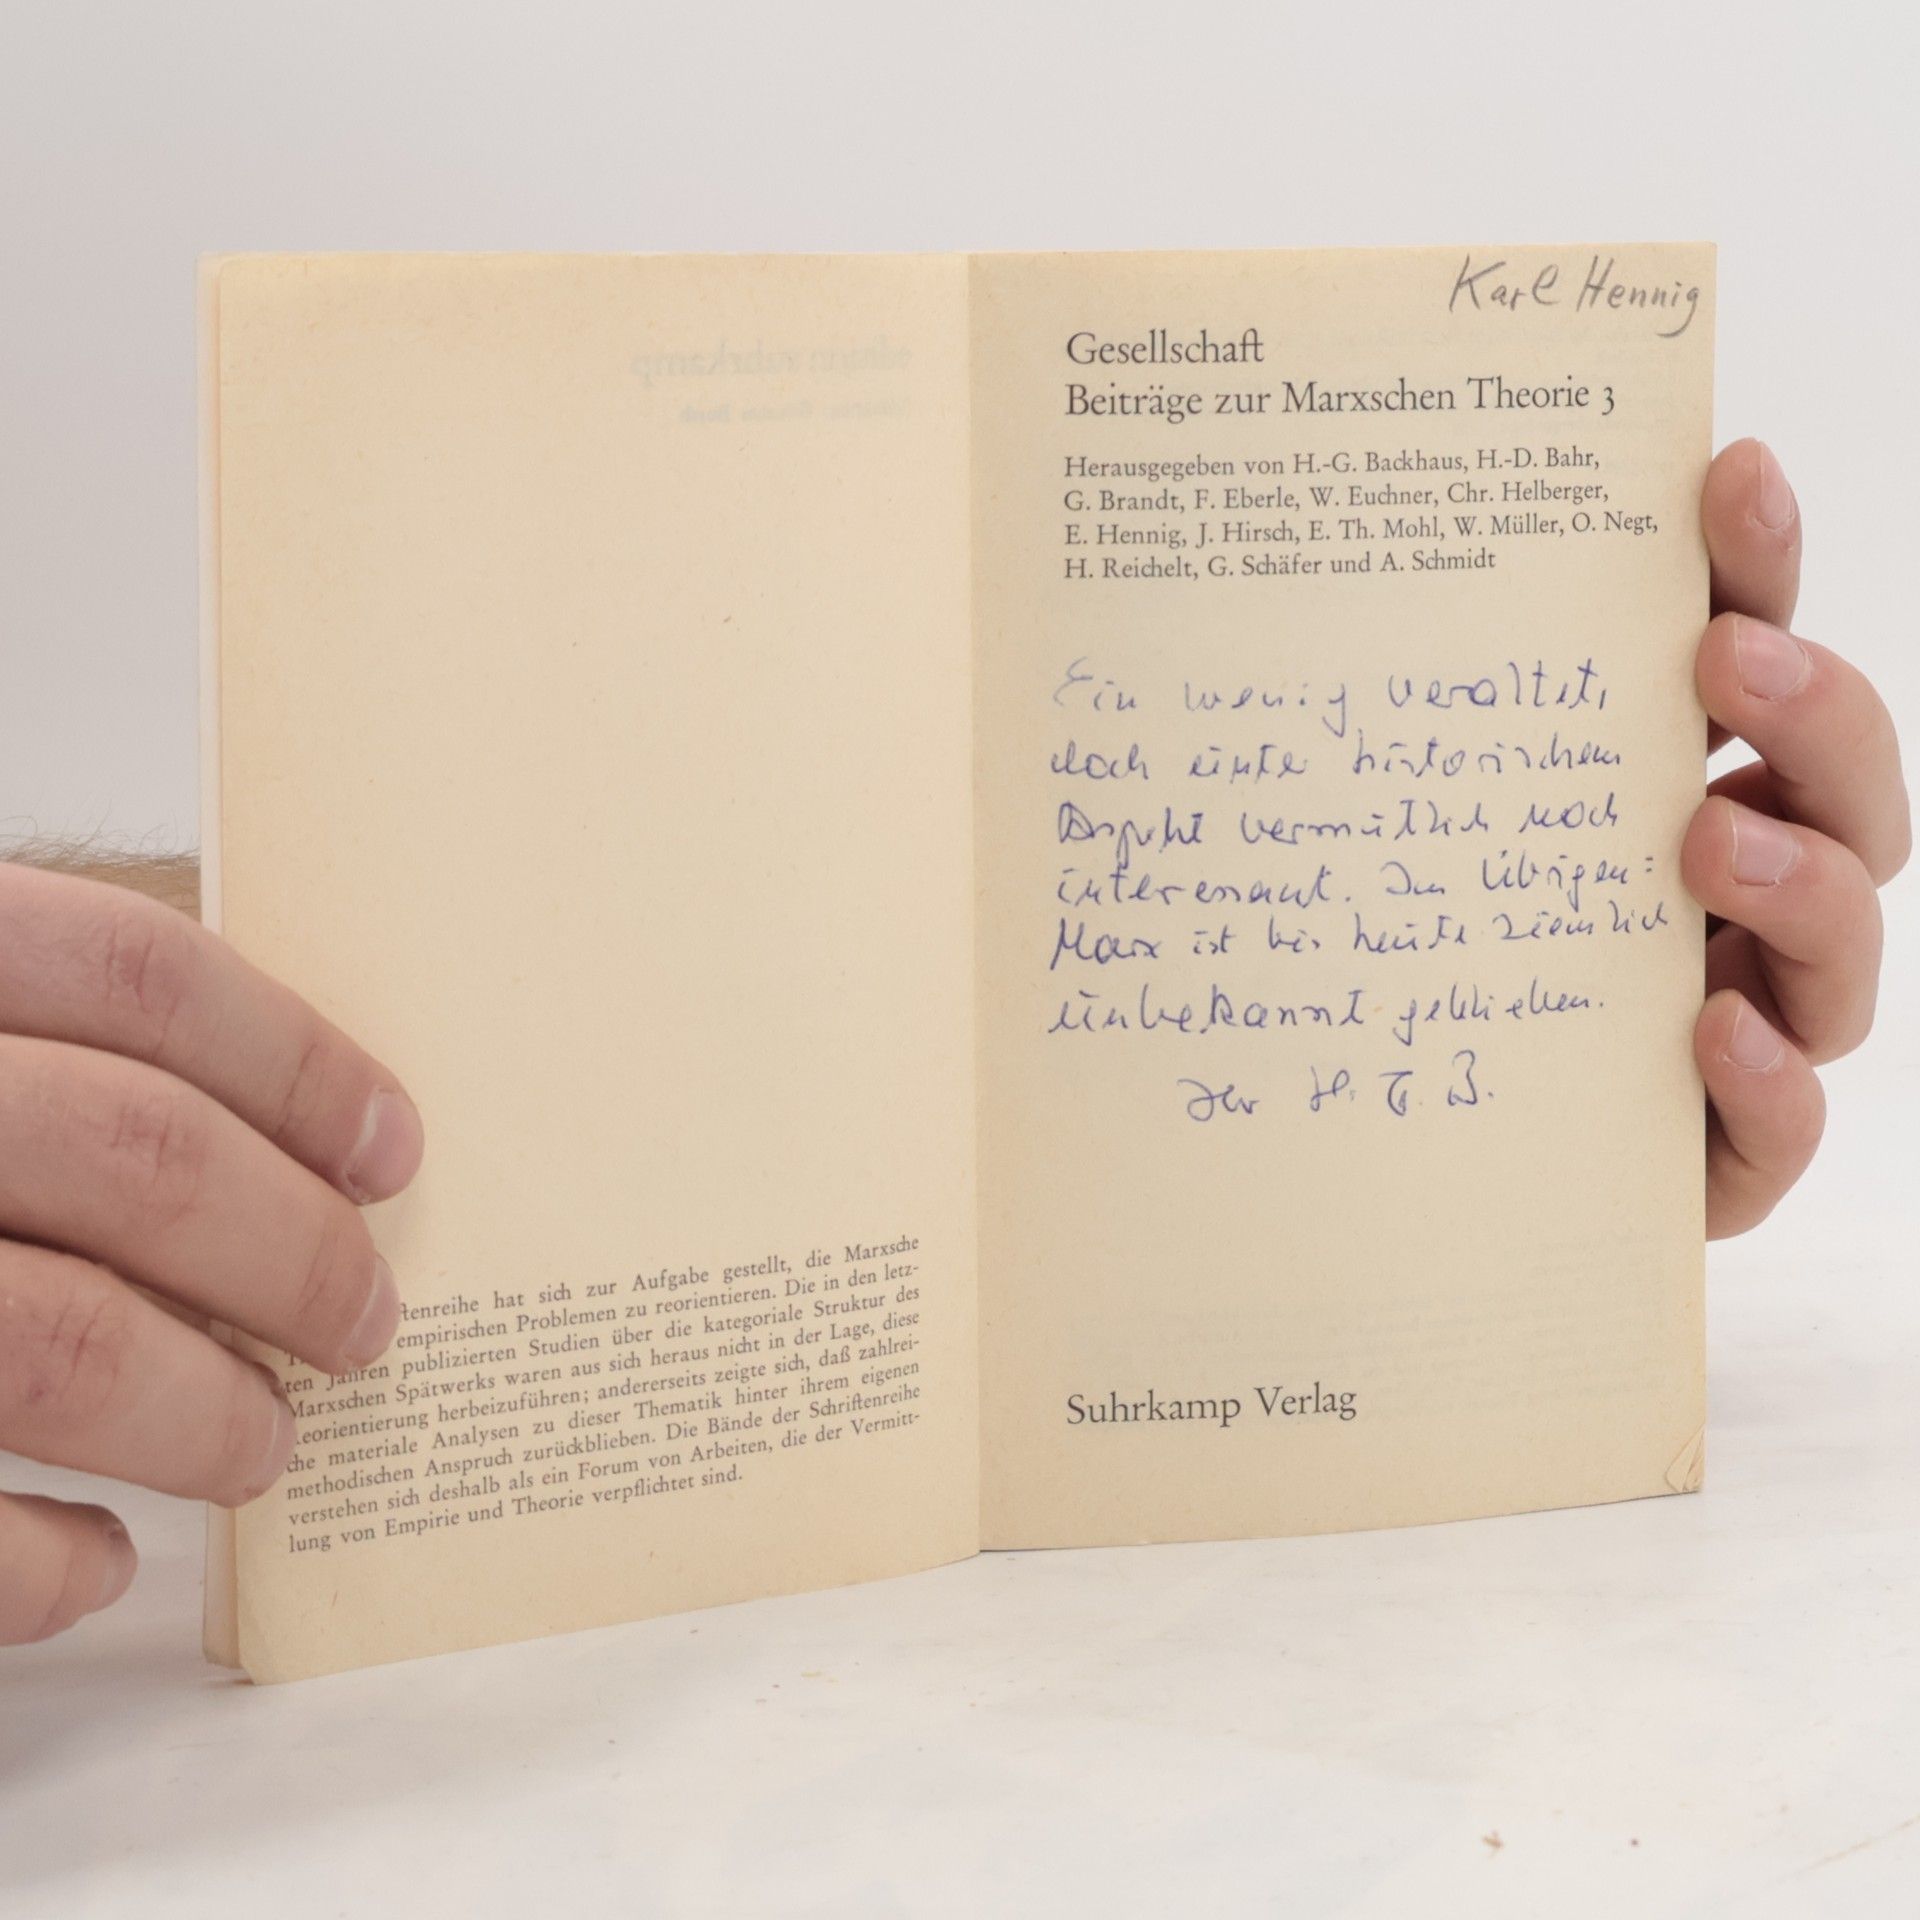 tenreihe hat sich zur Aufgabe gestellt, die Marxsche
empirischen Problemen zu reorientieren. Die in den letz-
ten Jahren publizierten Studien über die kategoriale Struktur des
Marxschen Spätwerks waren aus sich heraus nicht in der Lage, diese
eorientierung herbeizuführen; andererseits zeigte sich, daß zahlrei-
che materiale Analysen zu dieser Thematik hinter ihrem eigenen
methodischen Anspruch zurückblieben. Die Bände der Schriftenreihe
verstehen sich deshalb als ein Forum von Arbeiten, die der Vermitt-
lung von Empirie und Theorie verpflichtet sind.
Karl Hennig
Gesellschaft
Beiträge zur Marxschen Theorie 3
Herausgegeben von H.-G. Backhaus, H.-D. Bahr,
G. Brandt, F. Eberle, W. Euchner, Chr. Helberger,
E. Hennig, J. Hirsch, E. Th. Mohl, W. Müller, O. Negt,
H. Reichelt, G. Schäfer und A. Schmidt
Ein wenig veraltet,
doch unter historischem
Aspekt vermutlich noch
interessant. Im Übrigen:
Marx ist bis heute ziemlich
unbekannt geblieben.
H. G. B.
Suhrkamp Verlag